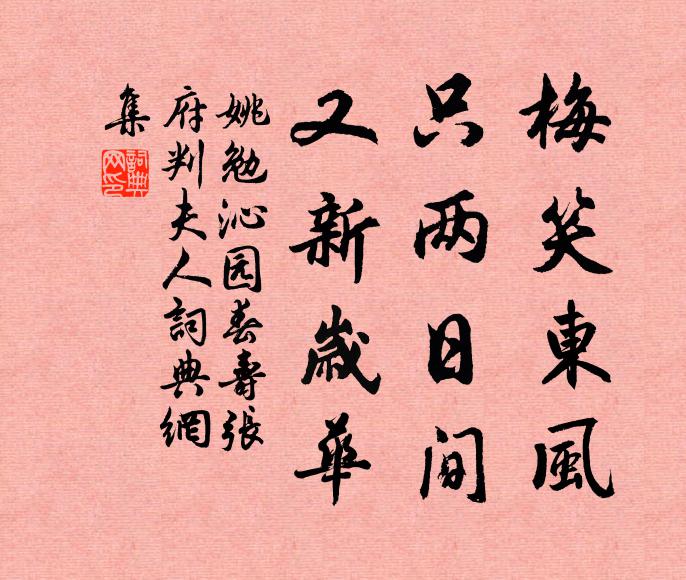 梅笑東風
只两日间
又新歲華
姚勉沁园春壽張
府判夫人詞典網
集
詞典
网印